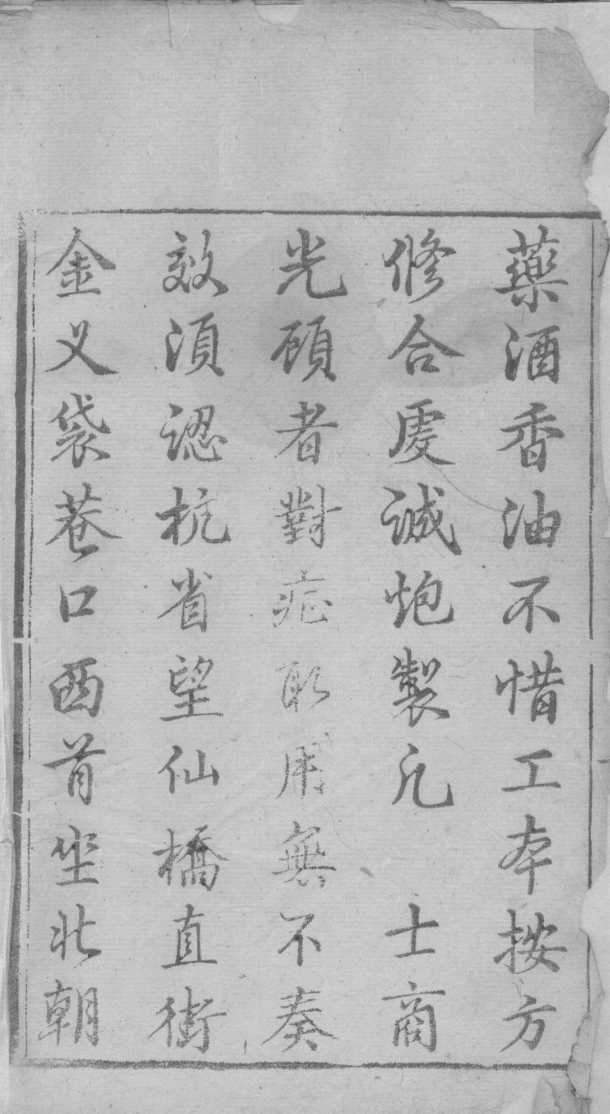 藥酒香油不惜工本按方
修合虔誠炮製凡　士商
光顧者對症取用無不奏
效須認杭省望仙橋直街
金义袋巷口西首坐北朝